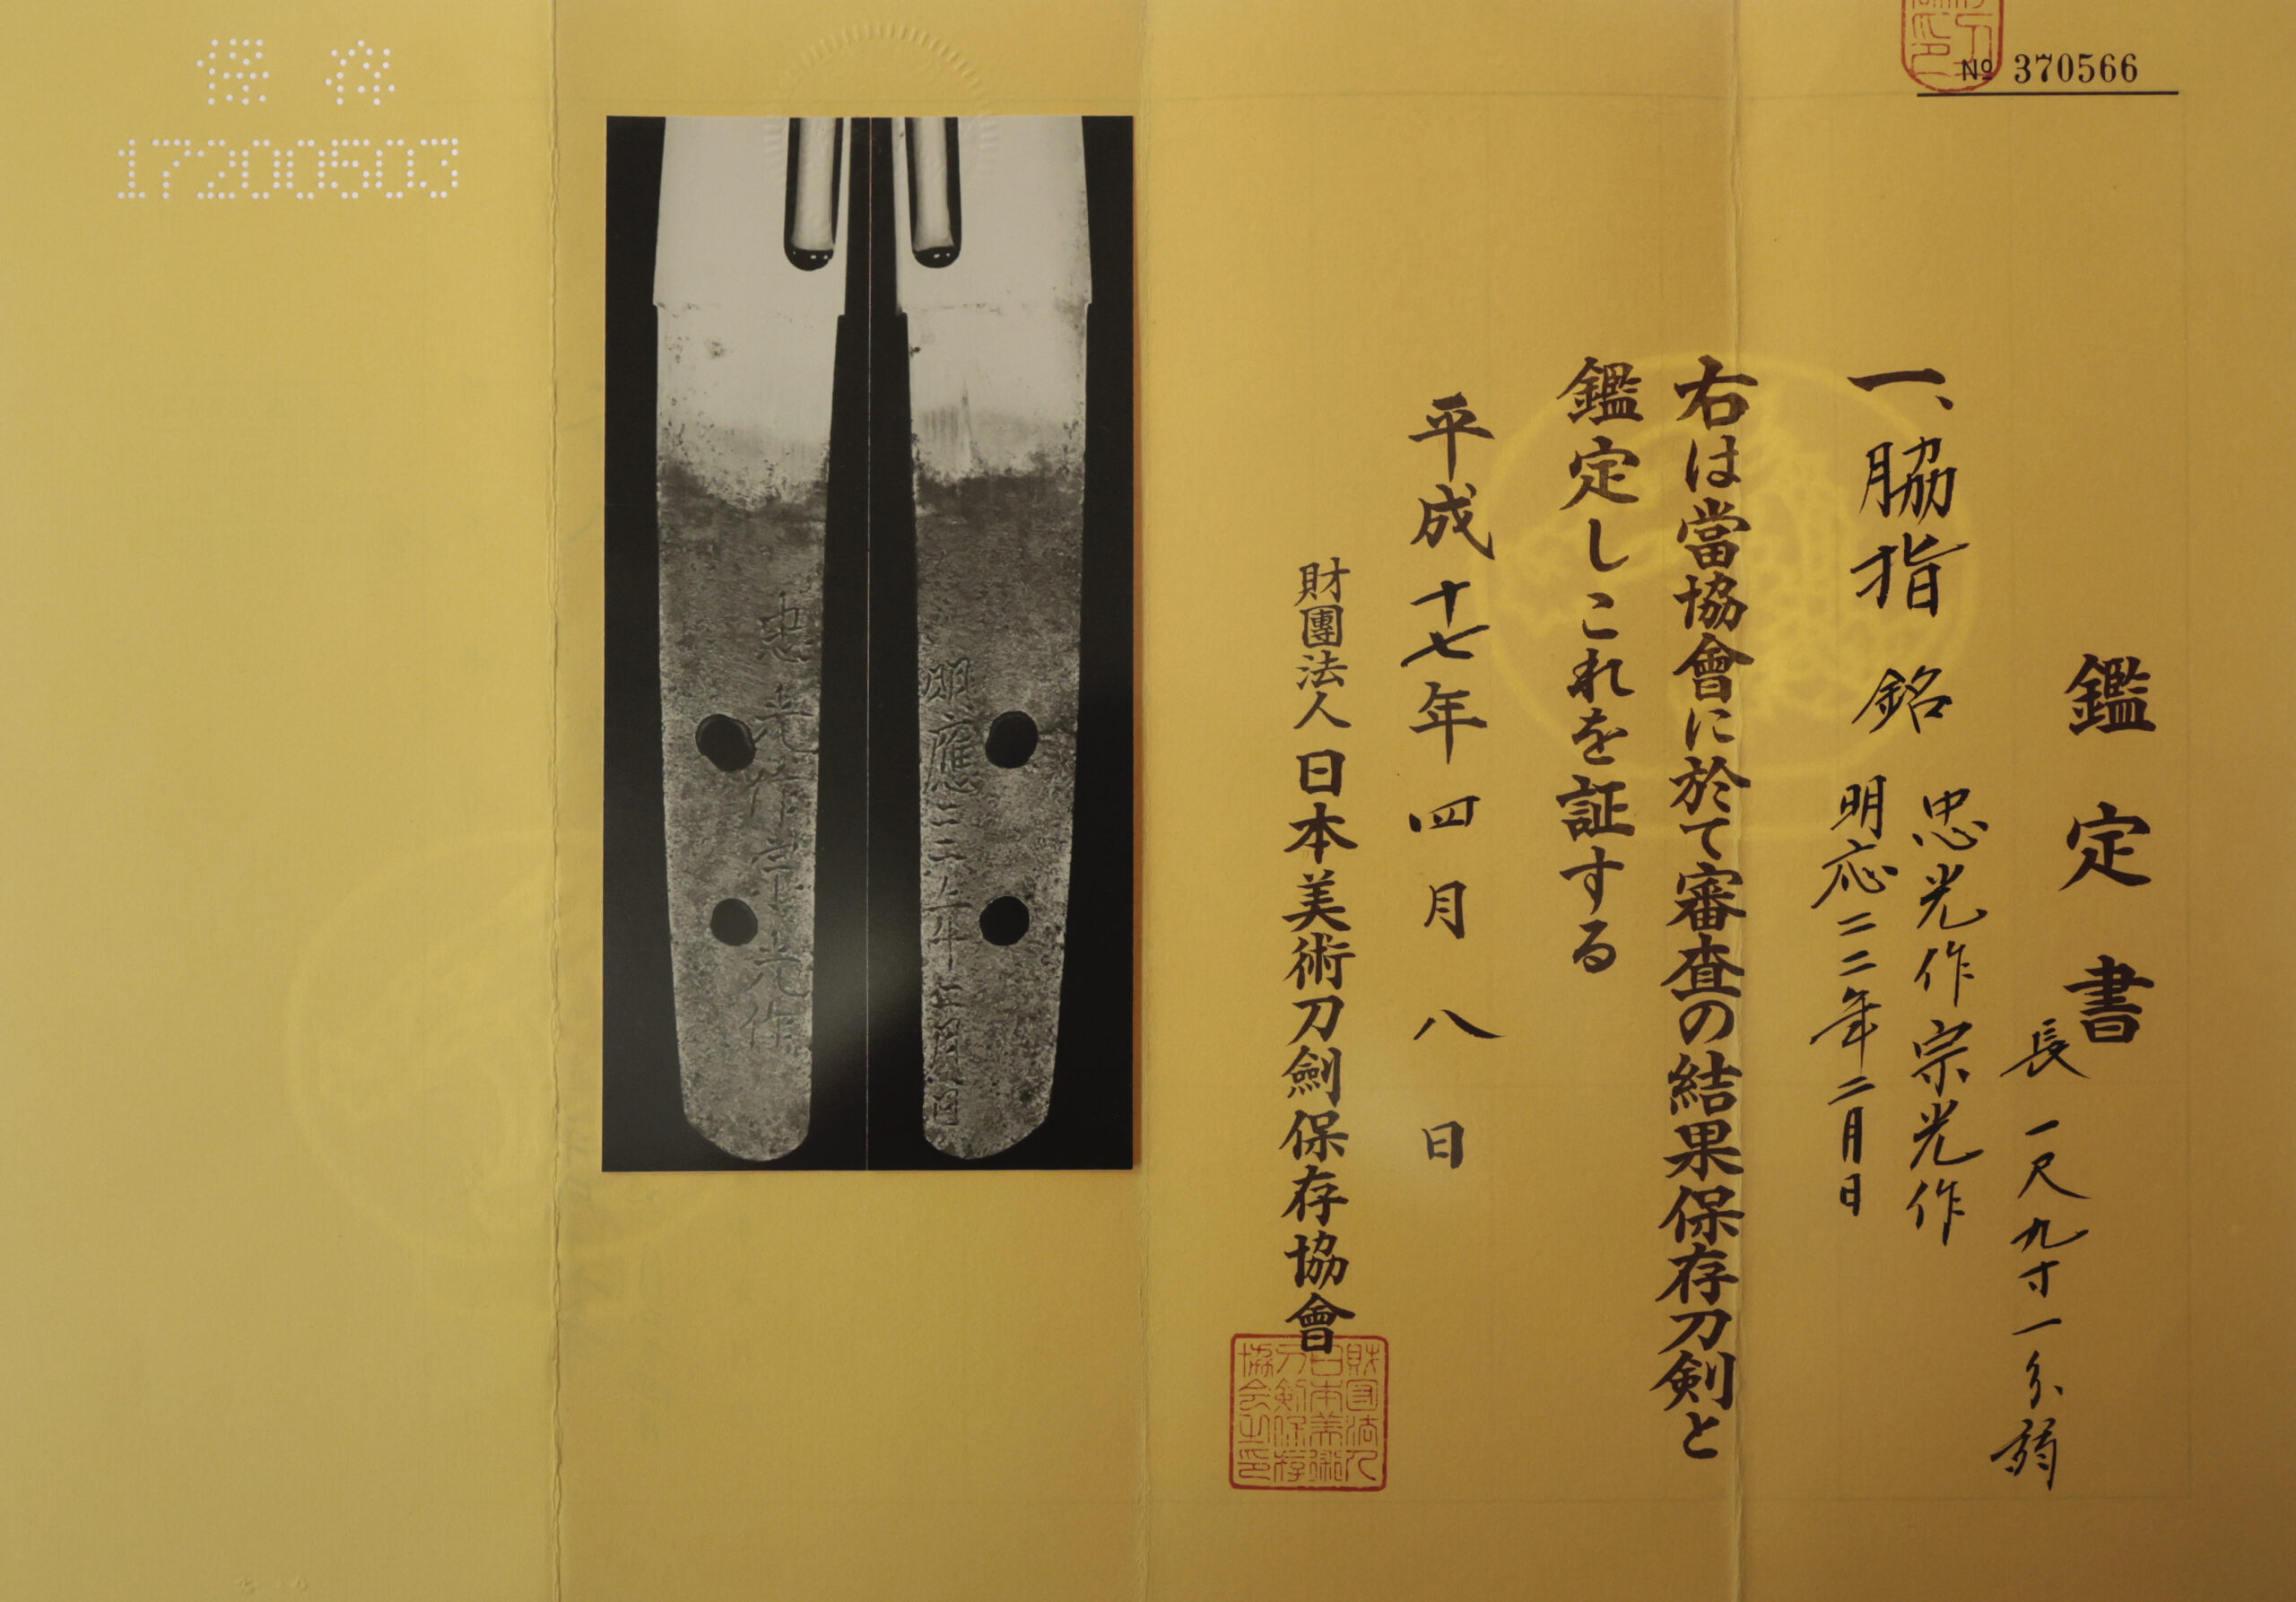 № 370566
鑑定書
長 一尺九寸一分弱
一、脇指 銘 忠光作宗光作
明応二二年二月日
右は當協會に於て審査の結果保存刀剣と
鑑定しこれを証する
平成十七年四月八日
財團法人 日本美術刀劍保存協會
財団法人日本美術刀剣保存協会之印
忠光作宗光作
保存
17200503